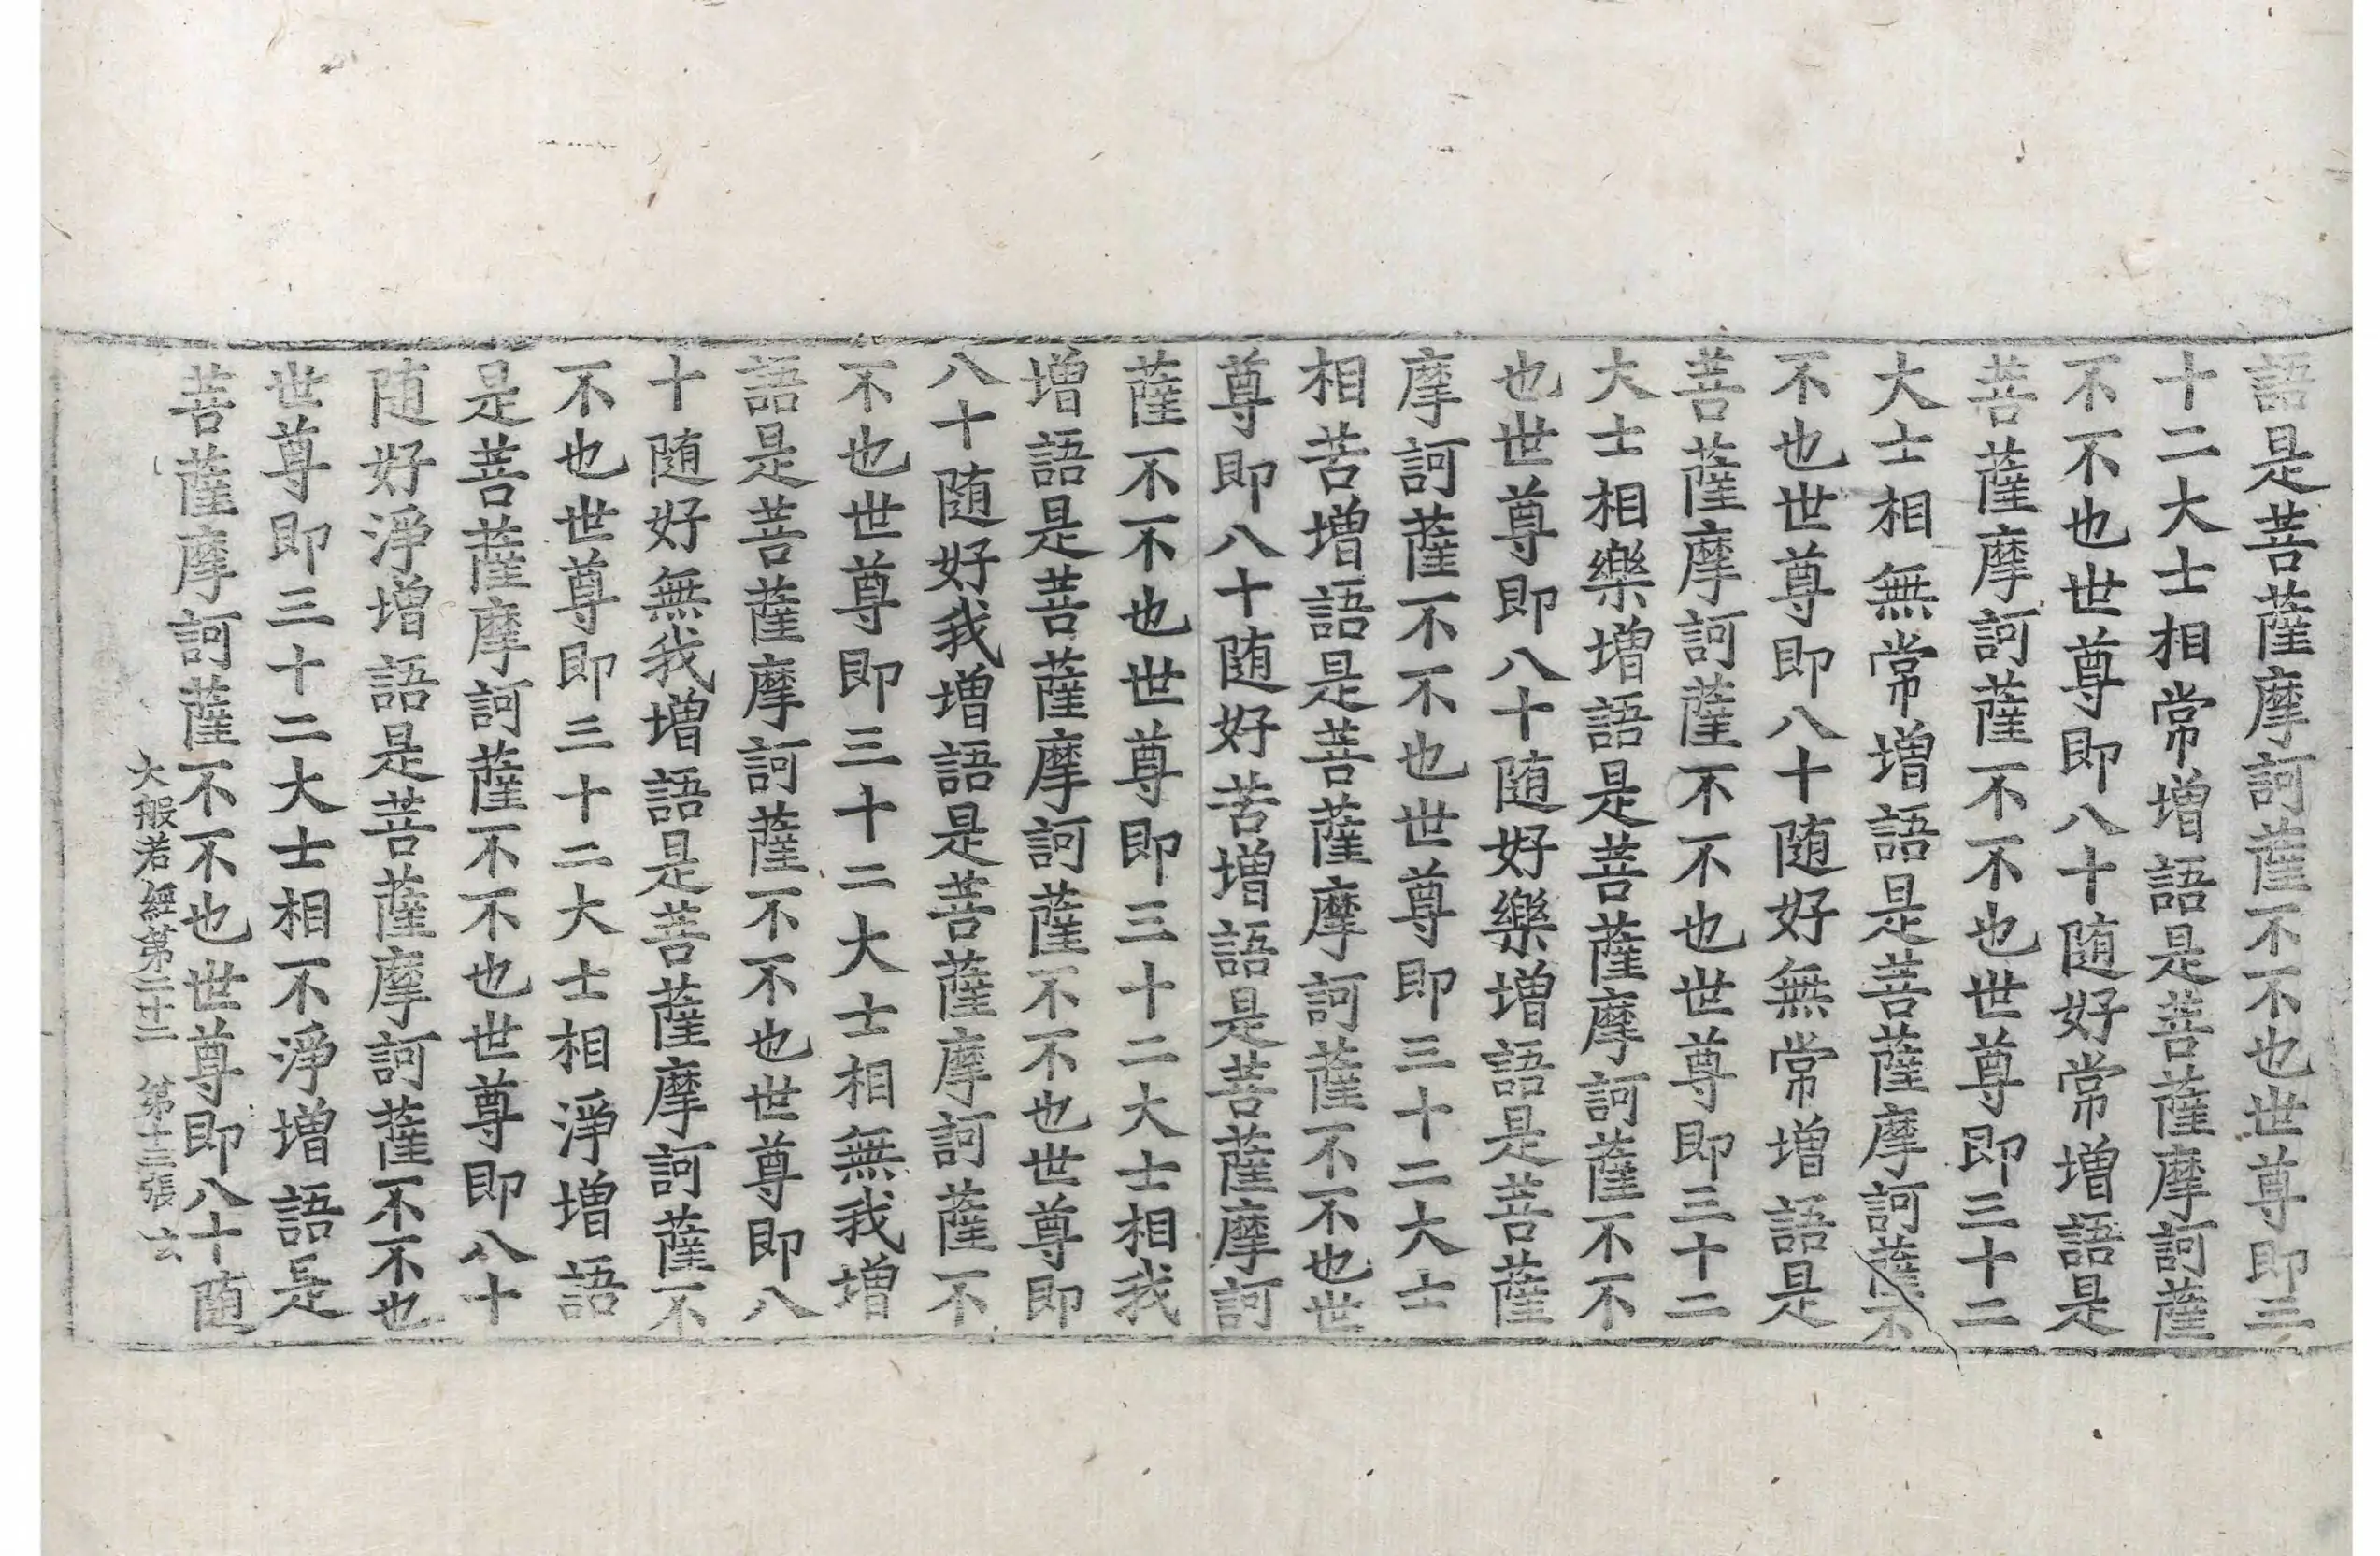 語是菩薩摩訶薩不不也世尊即三
十二大士相常增語是菩薩摩訶薩
不不也世尊即八十随好常增語是
菩薩摩訶薩不不也世尊即三十二
大士相無常增語是菩薩摩訶薩不
不也世尊即八十随好無常增語是
菩薩摩訶薩不不也世尊即三十二
大士相樂增語是菩薩摩訶薩不不
也世尊即八十随好樂增語是菩薩
摩訶薩不不也世尊即三十二大士
相苦增語是菩薩摩訶薩不不也世
尊即八十随好苦增語是菩薩摩訶
薩不不也世尊即三十二大士相我
增語是菩薩摩訶薩不不也世尊即
八十随好我增語是菩薩摩訶薩不
不也世尊即三十二大士相無我增
語是菩薩摩訶薩不不也世尊即八
十随好無我增語是菩薩摩訶薩不
不也世尊即三十二大士相淨增語
是菩薩摩訶薩不不也世尊即八十
随好淨增語是菩薩摩訶薩不不也
世尊即三十二大士相不淨增語是
菩薩摩訶薩不不也世尊即八十随
大般若經第二十二 第十三張